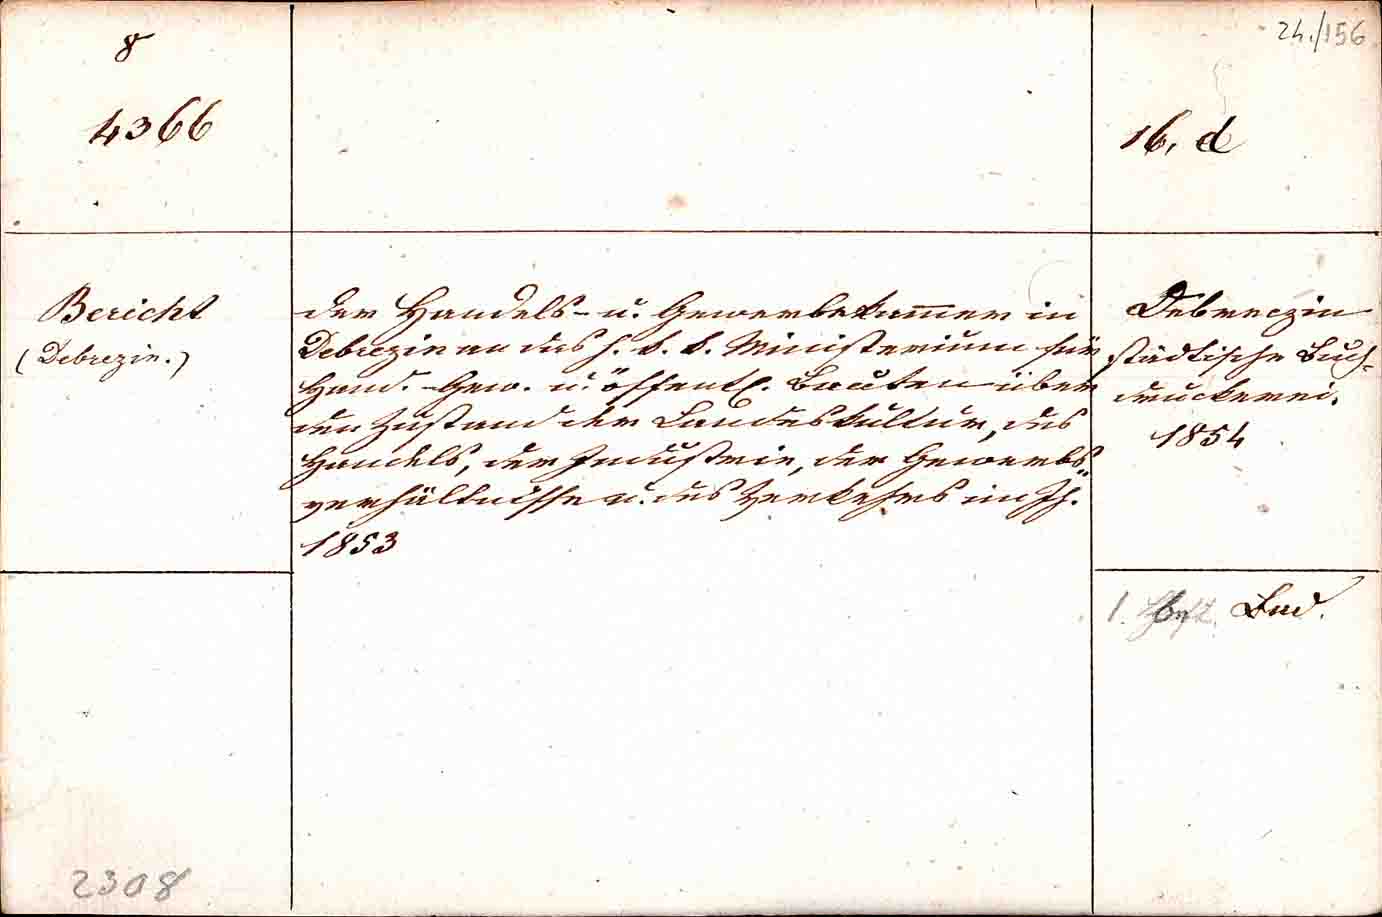 8
4366
24./156
16. d
Bericht
(Debrezin.)
der Handels- u. Gewerbekam̅er in
Debrezin an das h. k. k. Ministerium für
Hand. Gew. u. öffentl. Bauten über
den Zustand der Landeskultur, des
Handels, der Industrie, der Gewerbs-
verhältnisse u. des Verkehrs im Jh.
1853
Debreczin
städtische Buch-
druckerei.
1854
1. Bnd.
2308